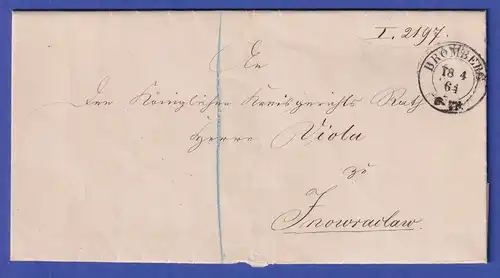 I. 2197.
BROMBERG
18 4
64
An
den Königlichen Kreisgerichts Rath
Herrn Viola
zu
Inowraclaw.